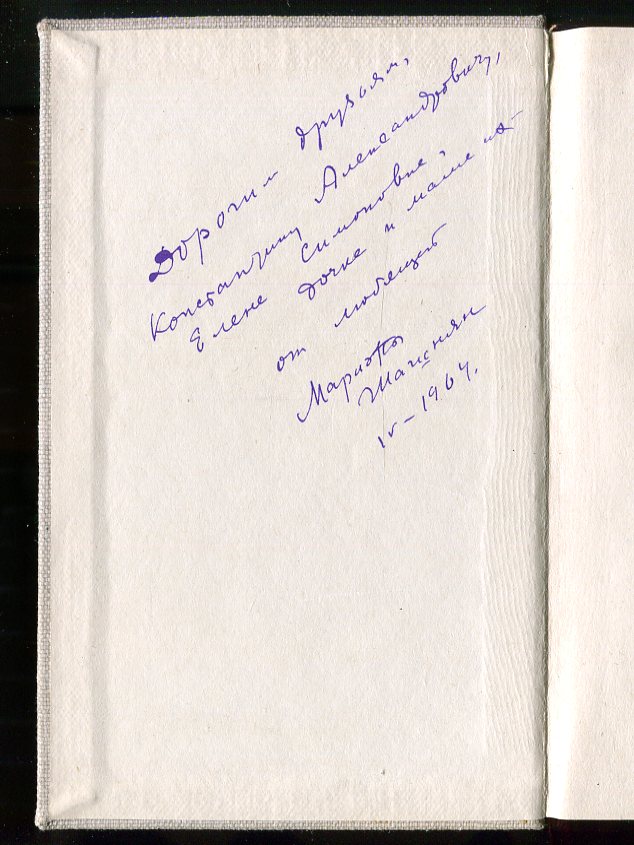 Дорогим друзьям,
Константину Александровичу,
Елене Симоновне,
дочке и маме их
от любящей
Мариэтты
Шагинян
IV–1964.